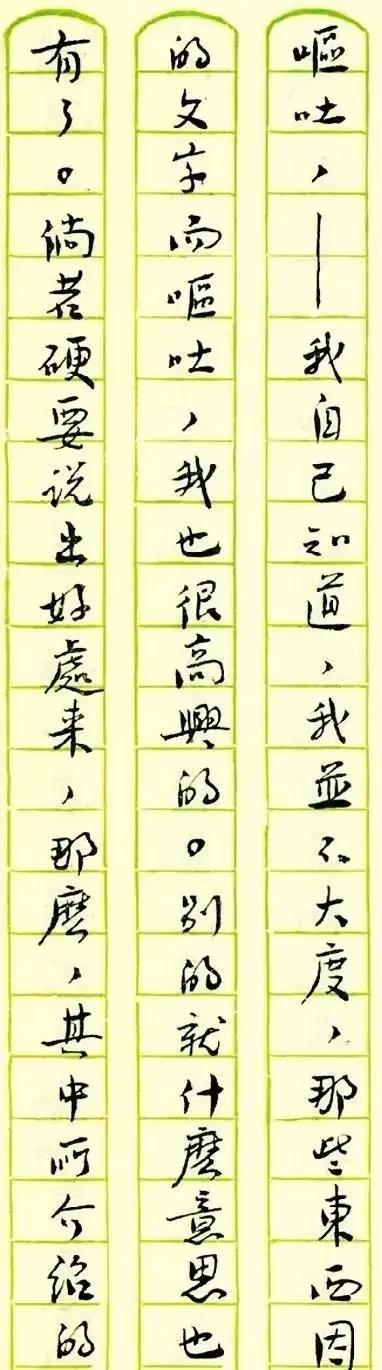 嘔吐，——我自己知道，我並不大度，那些東西因
的文字而嘔吐，我也很高興的。别的就什麼意思也
有了。倘若硬要说出好處来，那麼，其中所介紹的